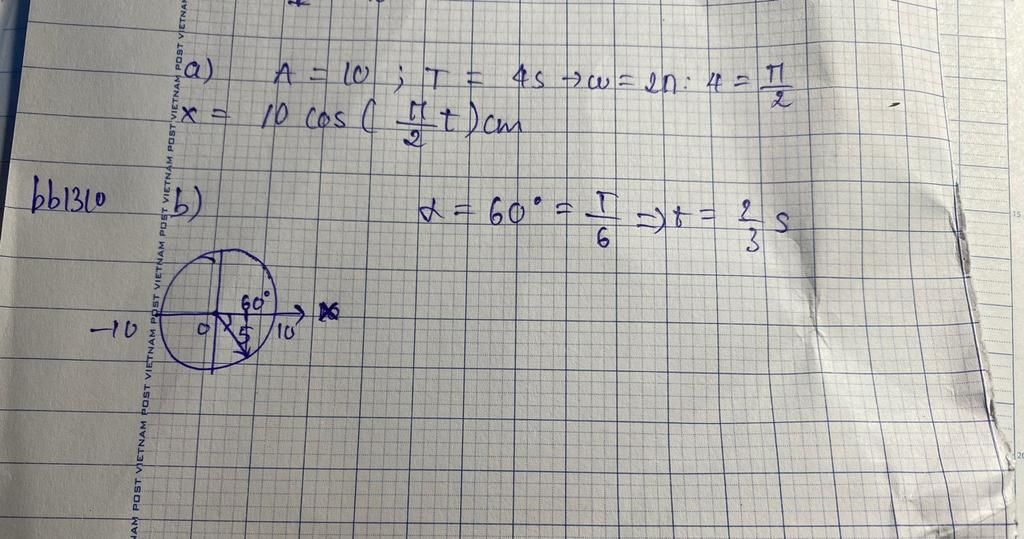 a) A = 10 ; T = 4s → ω = 2π : 4 = π/2
x = 10 cos ( π/2 t ) cm
bb1310 b) α = 60° = T/6 => t = 2/3 s
60°
-10 0 5 10 x
VIETNAM POST VIETNAM POST VIETNAM POST VIETNAM POST VIETNAM POST VIETNAM POST VIETNAM
15
20